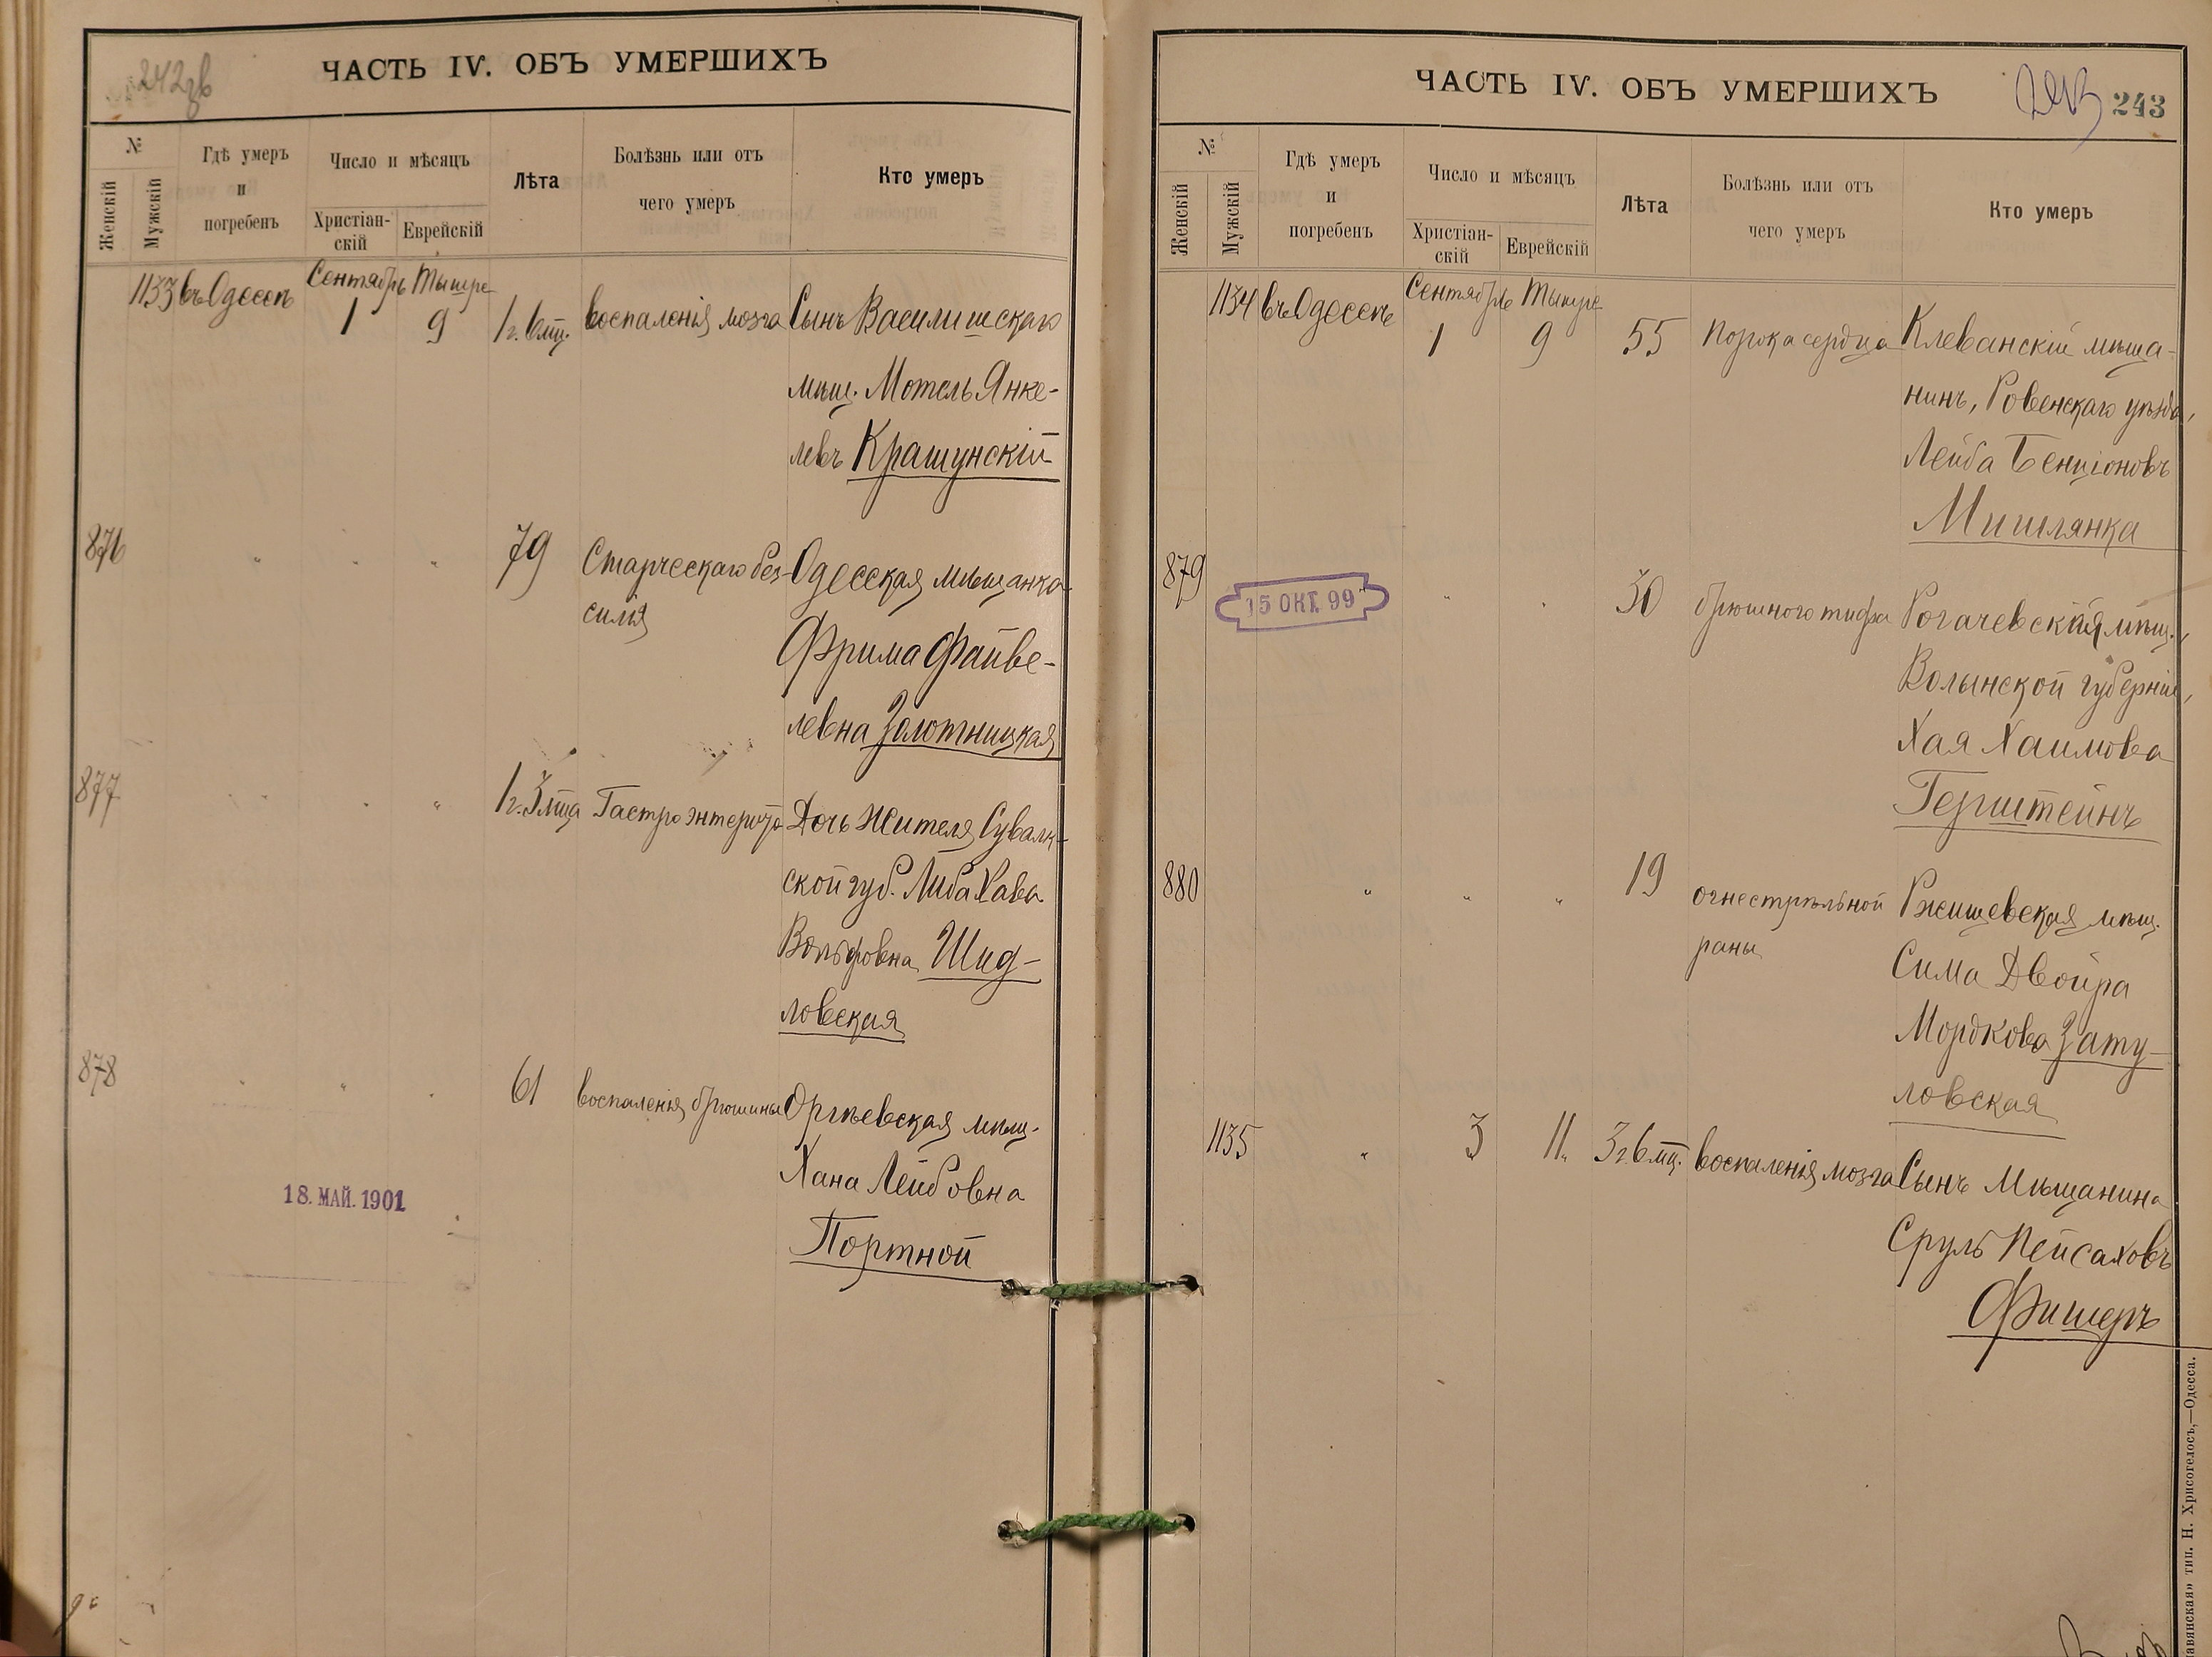 242 об
ЧАСТЬ IV. ОБЪ УМЕРШИХЪ
№
Женскій
Мужскій
Гдѣ умеръ
и
погребенъ
Число и мѣсяцъ
Христіан-
скій
Еврейскій
Лѣта
Болѣзнь или отъ
чего умеръ
Кто умеръ
Сентябрь Тышре
1133 въ Одессѣ 1 9 1 г. 6 мц. воспаленія мозга Сынъ Василишскаго
мѣщ. Мотель Янке-
левъ Крашунскій
876 " " " 79 Старческаго без- Одесская мѣщанка
силія
Фрима Файве-
левна Золотницкая
877 " " " 1 г. 3 мца Гастроэнтерита Дочь жителя Сувалк-
ской губ. Либа Хава
Вольфовна Шид-
ловская
878 " " " 61 воспаленія брюшины Оргѣевская мѣщ.
Хана Лейбовна
Портной
18. МАЙ. 1901
ЧАСТЬ IV. ОБЪ УМЕРШИХЪ
243
№
Женскій
Мужскій
Гдѣ умеръ
и
погребенъ
Число и мѣсяцъ
Христіан-
скій
Еврейскій
Лѣта
Болѣзнь или отъ
чего умеръ
Кто умеръ
Сентябрь Тышре
1134 въ Одессѣ 1 9 55 Порока сердца Клеванскій мѣща-
нинъ, Ровенскаго уѣзда,
Лейба Бенціоновъ
Мишлянка
879 15 ОКТ. 99 " " 30 брюшного тифа Рогачевская мѣщ.,
Волынской губерніи,
Хая Хаимова
Герштейнъ
880 " " " 19 огнестрѣльной Ржищевская мѣщ.
раны
Сима Двойра
Мордкова Зату-
ловская
1135 " 3 11 3 г. 6 мц. воспаленія мозга Сынъ Мѣщанина
Сруль Пейсаховъ
Фишеръ
тип. Н. Хрисогелосъ,—Одесса.